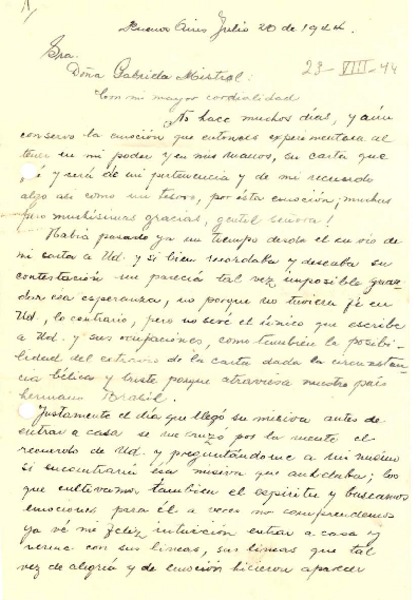 Buenos Aires Julio 20 de 1944.
Sra.
Doña Gabriela Mistral:
23-VIII-44
Con mi mayor cordialidad
No hace muchos días, y aún
conservo la emoción que entonces experimentara al
tener en mi poder y en mis manos, su carta que
es y será de mi pertenencia y de mi recuerdo
algo así como un tesoro, por ésta emoción; muchas
pero muchísimas gracias, gentil señora!
Había pasado ya un tiempo desde el envio de
mi carta a Ud. y si bien recordaba y deseaba su
contestación me parecía tal vez imposible guar-
dar esa esperanza, no porque no tuviera fé en
Ud., lo contrario, pero no seré el único que escribe
a Ud. y sus ocupaciones, como también la posibi-
lidad del extravio de la carta dada la circunstan-
cia bélica y triste porque atraviesa nuestro país
hermano Brasil.
Justamente el día que llegó su misiva antes de
entrar a casa se me cruzó por la mente el
recuerdo de Ud. y preguntándome a mi mismo
si encontraría esa misiva que anhelaba; los
que cultivamos también el espíritu y buscamos
emociones para él a veces no comprendemos
ya vé mi feliz intuición entrar a casa y
verme con sus lineas, sus lineas que tal
vez de alegría y de emoción hicieron aparecer